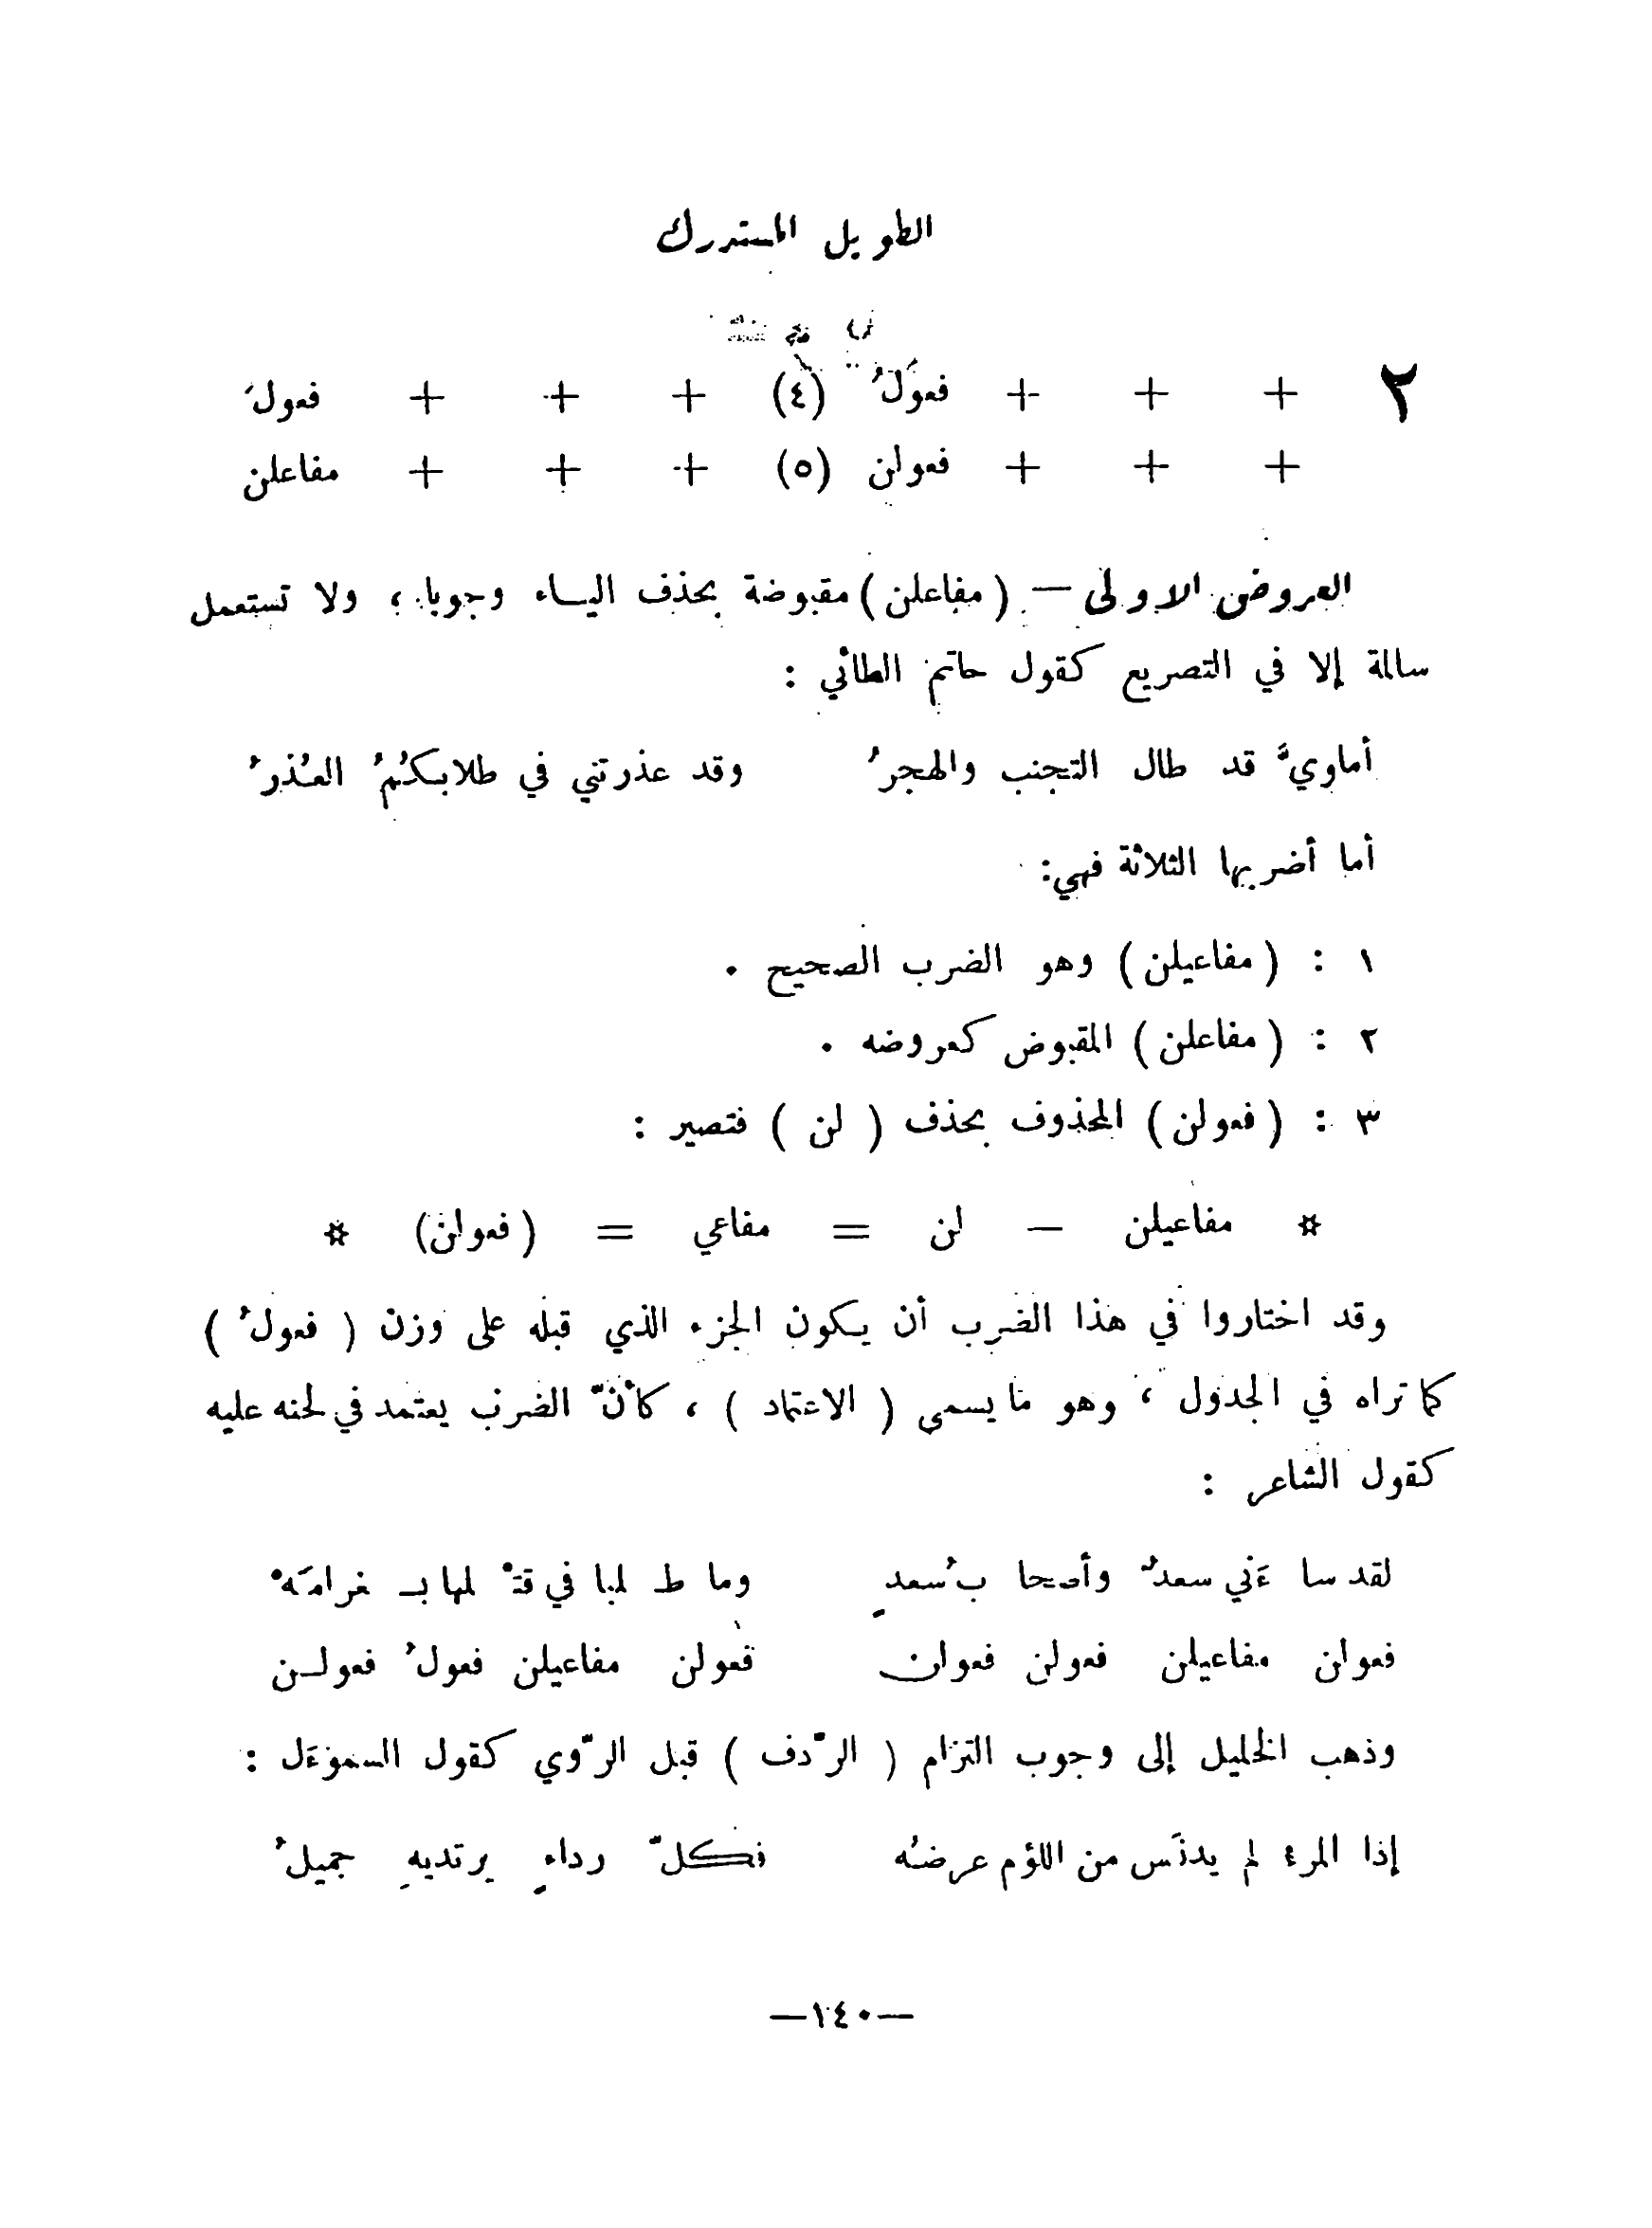 الطويل المستدرك
٢ + + + فعولُ (٤) + + + فعولُ
+ + + فعولن (٥) + + + مفاعلن
العروض الاولى — (مفاعلن) مقبوضة بحذف اليـاء وجوبا ؛ ولا تستعمل
سالمة إلا في التصريع كقول حاتم الطائي :
أماويَّ قد طال التجنب والهجرُ وقد عذرتني في طلابـكُمُ العُذرُ
أما أضربها الثلاثة فهي:
١ : (مفاعيلن) وهو الضرب الصحيح .
٢ : (مفاعلن) المقبوض كعروضه .
٣ : (فعولن) المحذوف بحذف ( لن ) فتصير :
* مفاعيلن — لن = مفاعي = (فعولن) *
وقد اختاروا في هذا الضرب أن يـكون الجزء الذي قبله على وزن ( فعولُ )
كما تراه في الجدول ، وهو ما يسمى ( الاعتماد ) ، كأنّ الضرب يعتمد في لحنه عليه
كقول الشاعر :
لقد سا ءَني سعدٌ وأصحا بُ سعدٍ وما ط لبا في قتْ لها بـ غرامَهْ
فعولن مفاعيلن فعولن فعولن فعولن مفاعيلن فعولُ فعولـن
وذهب الخليل إلى وجوب التزام ( الرّدف ) قبل الرّوي كقول السموءَل :
إذا المرء لم يدنَس من اللؤم عرضُه فـكلّ رداءٍ يرتديهِ جميلُ
—١٤٠—